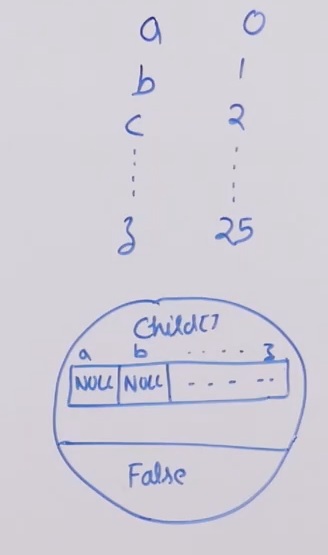 a 0
b 1
c 2
z 25
Child[]
a b .... z
NULL NULL - - - --
False